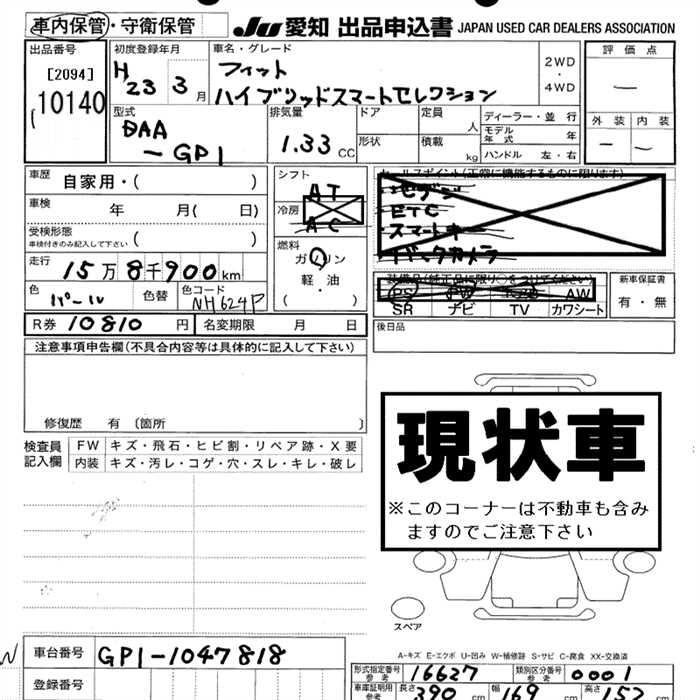 車内保管・守衛保管 JU 愛知 出品申込書 JAPAN USED CAR DEALERS ASSOCIATION
出品番号 初度登録年月 車名・グレード 評価点
[2094] H 23 3月 フィット 2WD・4WD
10140 ハイブリッドスマートセレクション
外装 内装
型式 排気量 ドア 定員 人 ディーラー・並行
DAA 1.33 CC 形状 積載 kg モデル年式 年
-GP1 ハンドル 左・右
車歴 自家用・( ) シフト セールスポイント(正常に機能するものに限ります)
AT
車検 年 月( 日) 冷房 AC ETC
受検形態 スマートキー
車検付きのみ記入して下さい ( ) 燃料 バックカメラ
走行 15万8千900km ガソリン
軽・油
( )
色 パール 色替 色コード NH624P 装備品(純正品に限り○をつけてください) 新車保証書
PS PW AW 有・無
SR ナビ TV カワシート
R券 10810円 名変期限 月 日 後日品
注意事項申告欄(不具合内容等は具体的に記入して下さい)
修復歴 有 〔箇所 〕
現状車
※このコーナーは不動車も含み
ますのでご注意下さい
検査員 FW キズ・飛石・ヒビ割・リペア跡・X要
記入欄 内装 キズ・汚レ・コゲ・穴・スレ・キレ・破レ
スペア
A-キズ E-エクボ U-凹み W-補修跡 S-サビ C-腐食 XX-交換済
車台番号 GP1-1047818
登録番号
形式指定番号 参考 16627 類別区分番号 参考 0001
車庫証明用 参考 長さ 390 cm 幅 169 cm 高さ 152 cm